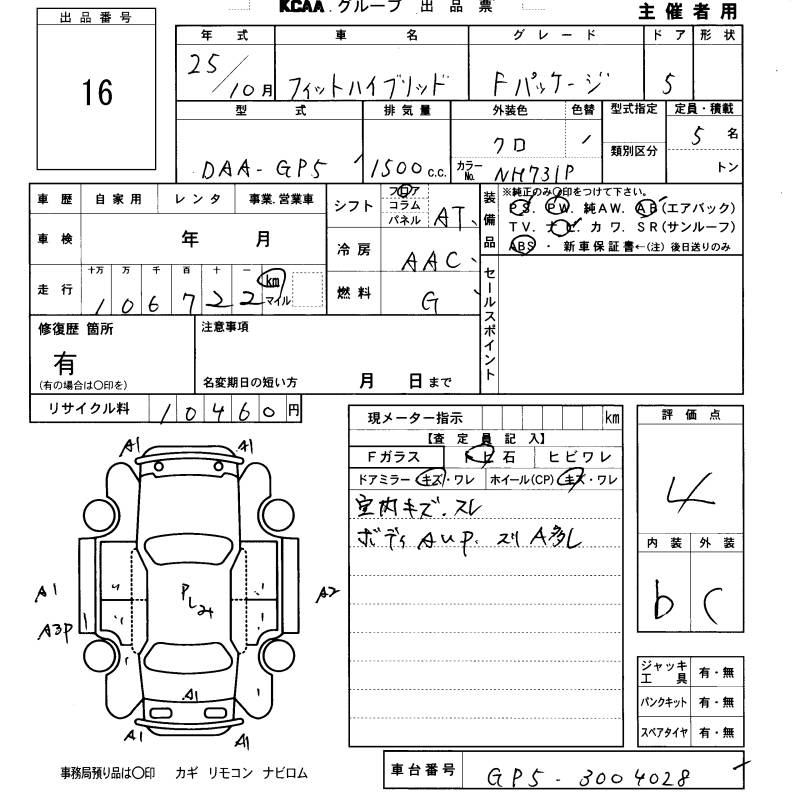 KCAA グループ 出品票
主催者用
出品番号
16
年式 車名 グレード ドア 形状
25/10月 フィットハイブリッド Fパッケージ 5
型式 排気量 外装色 色替 型式指定 定員・積載
DAA-GP5 1500 c.c. クロ カラーNo. NH731P 類別区分 5 名
トン
車歴 自家用 レンタ 事業.営業車
車検 年 月
走行 十万 万 千 百 十 一
106722 km マイル
シフト フロア コラム パネル AT
冷房 AAC
燃料 G
装備品 ※純正のみ〇印をつけて下さい。
PS. PW. 純AW. AB(エアバック)
TV. ナビ. カワ. SR(サンルーフ)
ABS ・ 新車保証書←(注) 後日送りのみ
セールスポイント
修復歴 箇所
有
(有の場合は〇印を)
注意事項
名変期日の短い方 月 日まで
リサイクル料 10460 円
現メーター指示 km
【査定員記入】
Fガラス トビ石 ヒビワレ
ドアミラー キズ・ワレ ホイール(CP) キズ・ワレ
室内キズ.スレ
ボディ AUP. スリ A多し
評価点
4
内装 外装
b C
ジャッキ工具 有・無
パンクキット 有・無
スペアタイヤ 有・無
A1 A1
A1 A2
A3P
A1
A1 A1
事務局預り品は〇印 カギ リモコン ナビロム
車台番号 GP5-3004028